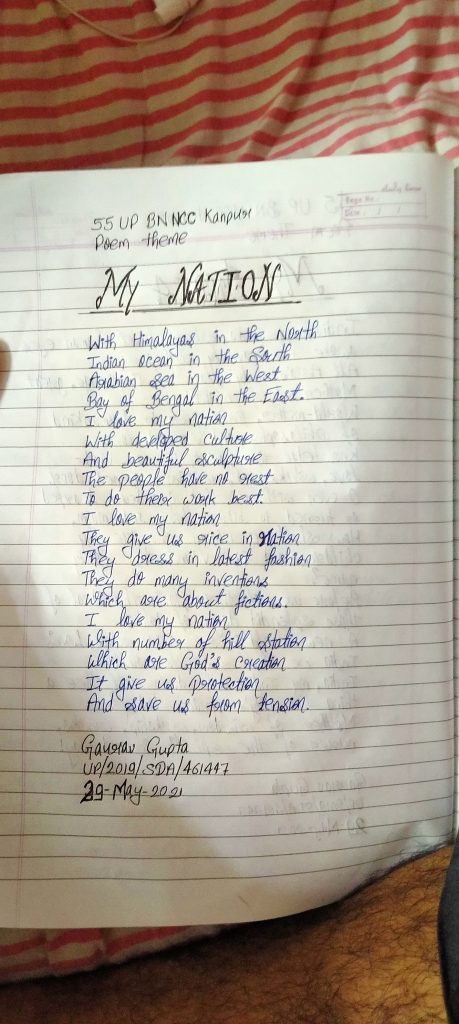 55 UP BN NCC Kanpur
Poem theme
Page No.:
Date: / /
MY NATION
With Himalayas in the North
Indian Ocean in the South
Arabian sea in the West
Bay of Bengal in the East.
I love my nation
With developed culture
And beautiful sculpture
The people have no rest
To do their work best.
I love my nation
They give us rice in Nation
They dress in latest fashion
They do many inventions
Which are about fictions.
I love my nation
With number of hill station
Which are God's creation
It give us protection
And save us from tension.
Gaurav Gupta
UP/2019/SDA/461447
29-May-2021